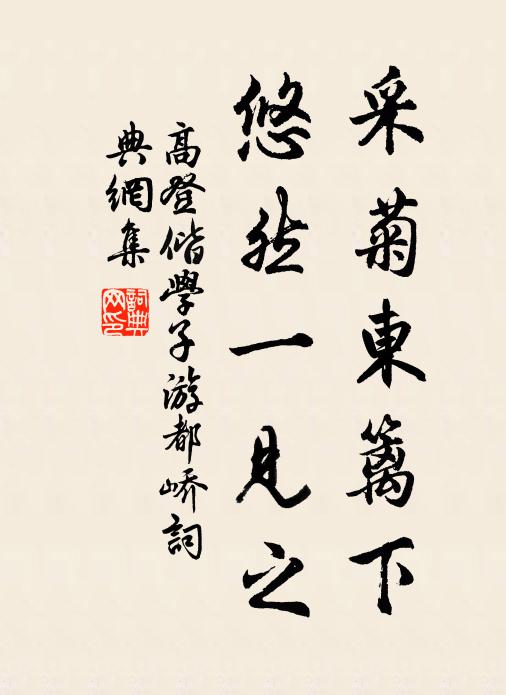 采菊東篱下
悠然一見之
高登偕學子游都嶠詞
典網集
詞典
网印